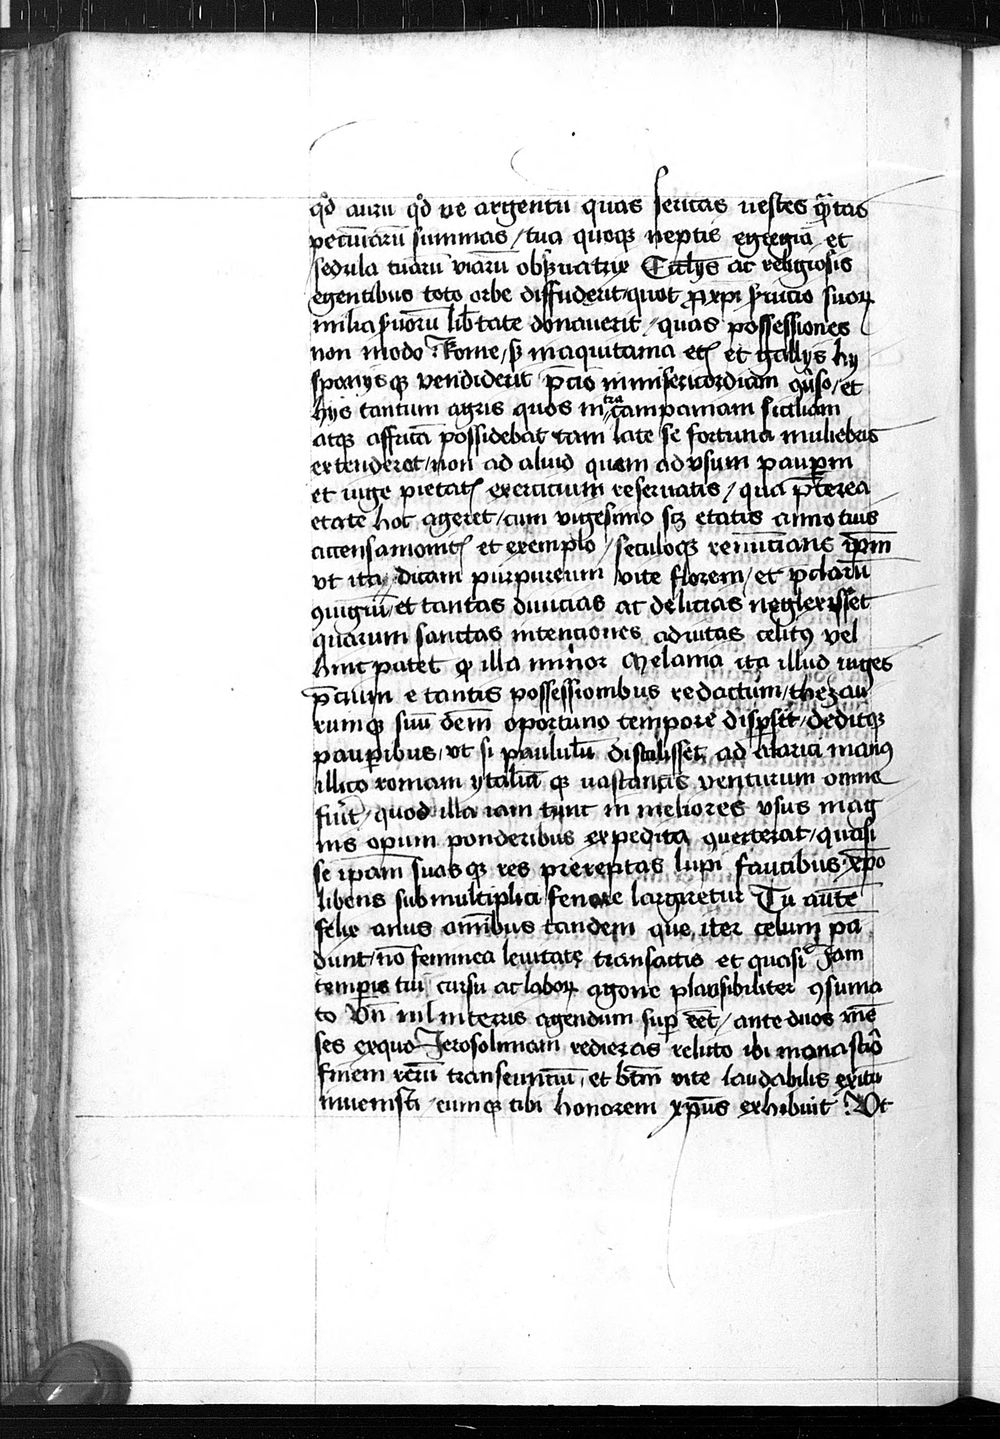 qd̊ aurū qd̊ ve argentū quas sericas uestes q̄ntas
pecuniarū summas / tua quoqȝ neptis egregia et
sedula tuarū viarū obẜuatrix Eccl̄ijs ac religiosis
egentibus toto orbe diffuderit / quot ꝓ xp̄i ẜuicio suoꝝ
milia ẜuorū lib̄tate donauerit / quas possessiones
non modo Rome / sȝ in aquitania etc̄ et gallijs hy
spanijsqȝ vendiderit p̄cio in misericordiam ꝯuerso / et
hijs tantum agris quos intra campaniam siciliam
atqȝ affricā possidebat tam late se fortuna muliebris
extenderat / non ad aliud quam ad vsum paupꝝm
et iuge pietatꝭ exercicium reseruatis / qua p̄terea
etate hoc ageret / cum vigesimo scȝ etatis anno tuis
accensa monitꝭ et exemplo / seculoqȝ renūcians ip̄m
vt ita dicam purpureum vite florem / et p̄clarū
ꝯiugiū / et tantas diuicias ac delicias neglexisset
quarum sanctas intenciones adiutas celitꝰ vel
hinc patet qꝫ illa minor Melania ita illud iuges
p̄cium e tantis possessionibus redactum / thezau
rumqȝ suū dem̄ oportuno tempore disp̄sit / deditqȝ
paup̄ibus / vt si paululū distulisset ad alarici manꝰ
illico romam ytaliā qȝ uastantis venturum omne
fu͛it / quod illa iam tunc in meliores vsus mag
nis opum ponderibus expedita ꝯuerterat / quasi
se ip̄am suasqȝ res prereptas lupi faucibus xp̄o
libens sub multiplici fenore largiretur Tu autē
felix anus amb̄ibus tandem que iter celum pa
dunt / nō feminea leuitate transactis et quasi Jam
temp̄is tui cursu ac laboꝝ agone plausibiliter ꝯsuma
to Vn̄ nil in terris agendum sup̄eēt / ante duos mē
ses ex quo Jerosolimam redieras relicto ibi monast͛io
finem rerū transeuntiū / et btm̄ vite laudabilis exitū
inuenisti / eumqȝ tibi honorem xp̄us exhibuit Vt